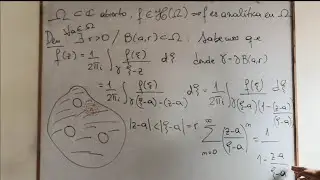 Ω ⊂ ℂ abierto, f ∈ ℋ(Ω) ⇒ f es analítica en Ω
Dem ∀a∈Ω ∃ r>0 / B(a,r) ⊂ Ω. Sabemos que
f(z) = 1/2πi ∫_γ f(ξ)/(ξ-z) dξ donde γ = ∂B(a,r)
= 1/2πi ∫_γ f(ξ)/((ξ-a)-(z-a)) dξ = 1/2πi ∫_γ f(ξ) dξ/((ξ-a)(1-(z-a)/(ξ-a)))
|z-a| < |ξ-a| = r ∑_{n=0}^{∞} ((z-a)/(ξ-a))^n = 1/(1-(z-a)/(ξ-a))